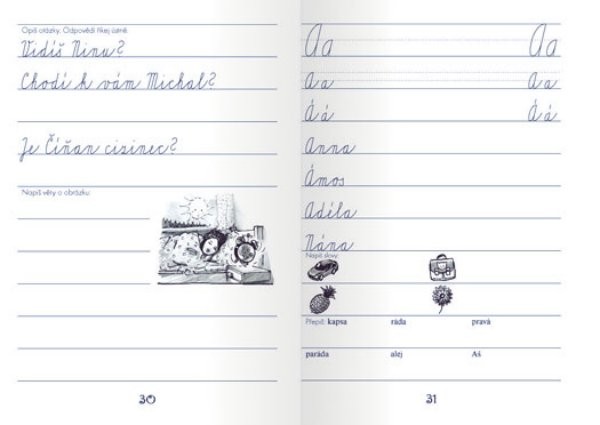 Opiš otázky. Odpovědi říkej ústně.
Vidíš Ninu?
Chodí k vám Michal?
Je Číňan cizinec?
Napiš věty o obrázku:
30
Aa Aa
Aa Aa
Áá Áá
Anna
Ámos
Adéla
Nána
Napiš slovy:
Přepiš: kapsa ráda pravá
paráda alej Aš
31